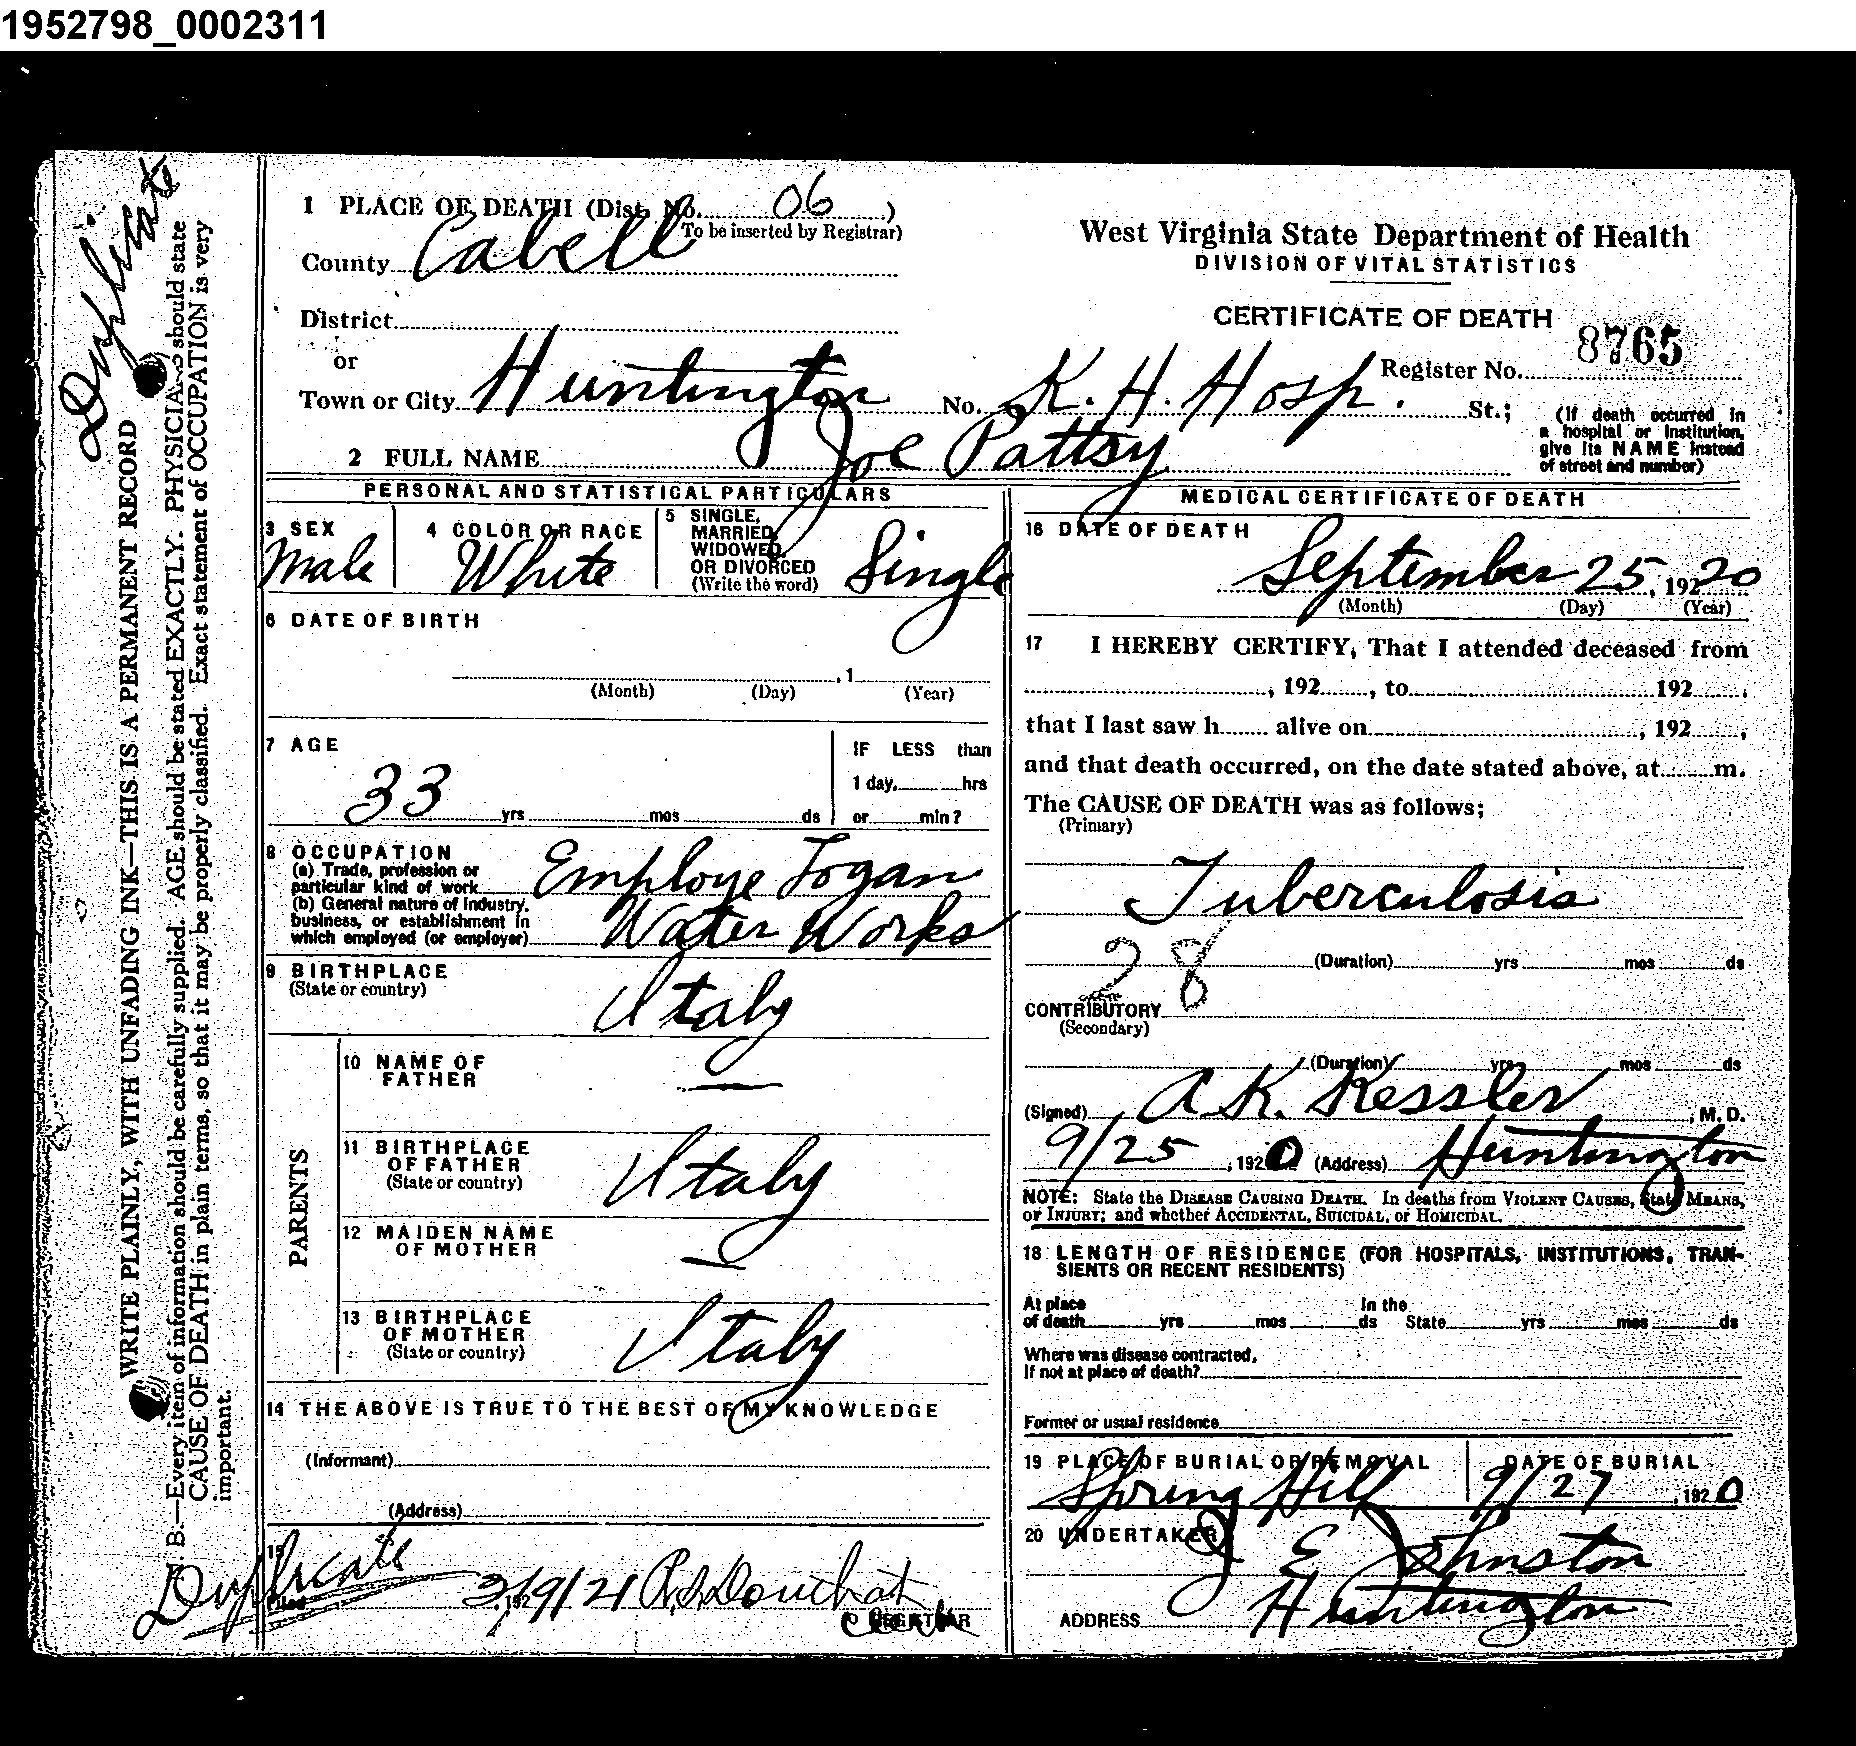 1952798_0002311
Duplicate
WRITE PLAINLY, WITH UNFADING INK—THIS IS A PERMANENT RECORD
N. B.—Every item of information should be carefully supplied. AGE should be stated EXACTLY. PHYSICIANS should state
CAUSE OF DEATH in plain terms, so that it may be properly classified. Exact statement of OCCUPATION is very
important.
1 PLACE OF DEATH (Dist. No. 06 )
To be inserted by Registrar)
County Cabell
District
or
Town or City Huntington No. K. H. Hosp. St.;
West Virginia State Department of Health
DIVISION OF VITAL STATISTICS
CERTIFICATE OF DEATH
8765
Register No.
(If death occurred in
a hospital or institution,
give its NAME instead
of street and number)
2 FULL NAME Joe Pattsy
PERSONAL AND STATISTICAL PARTICULARS
3 SEX
Male
4 COLOR OR RACE
White
5 SINGLE,
MARRIED,
WIDOWED,
OR DIVORCED
(Write the word)
Single
6 DATE OF BIRTH
, 1
(Month) (Day) (Year)
7 AGE
33 yrs mos ds
IF LESS than
1 day, hrs
or min?
8 OCCUPATION
(a) Trade, profession or
particular kind of work Employe Logan
(b) General nature of Industry,
business, or establishment in
which employed (or employer) Water Works
9 BIRTHPLACE
(State or country)
Italy
PARENTS
10 NAME OF
FATHER
—
11 BIRTHPLACE
OF FATHER
(State or country)
Italy
12 MAIDEN NAME
OF MOTHER
—
13 BIRTHPLACE
OF MOTHER
(State or country)
Italy
14 THE ABOVE IS TRUE TO THE BEST OF MY KNOWLEDGE
(Informant)
(Address)
15
Duplicate
Filed 3/9/21
REGISTRAR
MEDICAL CERTIFICATE OF DEATH
16 DATE OF DEATH
September 25, 19220
(Month) (Day) (Year)
17 I HEREBY CERTIFY, That I attended deceased from
, 192 , to 192 ,
that I last saw h alive on , 192 ,
and that death occurred, on the date stated above, at m.
The CAUSE OF DEATH was as follows;
(Primary)
Tuberculosis
28
(Duration) yrs mos ds
CONTRIBUTORY
(Secondary)
(Duration) yrs mos ds
(Signed) A K. Kessler , M. D.
9/25 , 1920 (Address) Huntington
NOTE: State the DISEASE CAUSING DEATH. In deaths from VIOLENT CAUSES, State MEANS,
or INJURY; and whether ACCIDENTAL, SUICIDAL, or HOMICIDAL.
18 LENGTH OF RESIDENCE (FOR HOSPITALS, INSTITUTIONS, TRAN-
SIENTS OR RECENT RESIDENTS)
At place In the
of death yrs mos ds State yrs mos ds
Where was disease contracted,
If not at place of death?
Former or usual residence
19 PLACE OF BURIAL OR REMOVAL
Spring Hill
DATE OF BURIAL
9/27 , 1920
20 UNDERTAKER
J E Johnston
ADDRESS Huntington